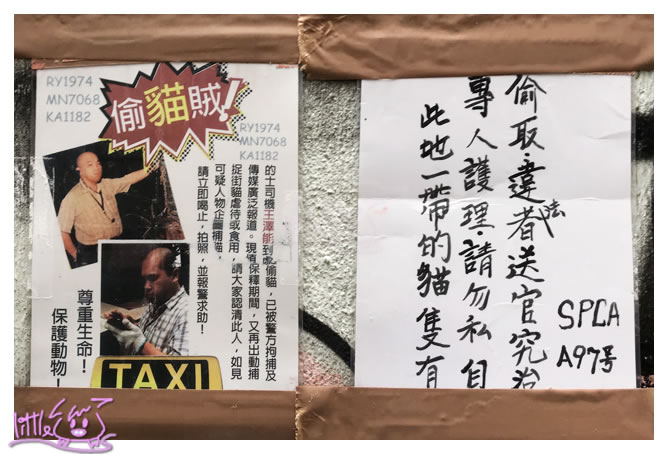 RY1974
MN7068
KA1182
偷貓賊!
RY1974
MN7068
KA1182
的士司機王澤能到處偷貓，已被警方拘捕及
傳媒廣泛報道。現值保釋期間，又再出動捕
捉街貓虐待或食用，請大家認清此人，如見
可疑人物企圖捕貓，
請立即喝止，拍照，並報警求助！
尊重生命！
保護動物！
TAXI
此地一帶的貓隻有
專人護理，請勿私自
偷取，違法者送官究治
SPCA
A97号
little